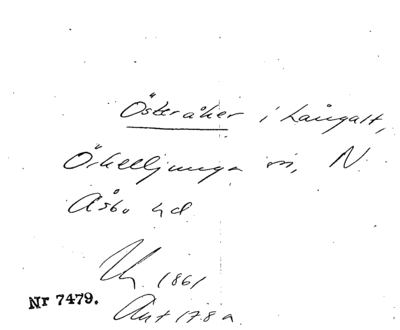 Österåker i Långalt,
Örkelljunga sn, N
Åsbo hd
1861
Nr 7479.